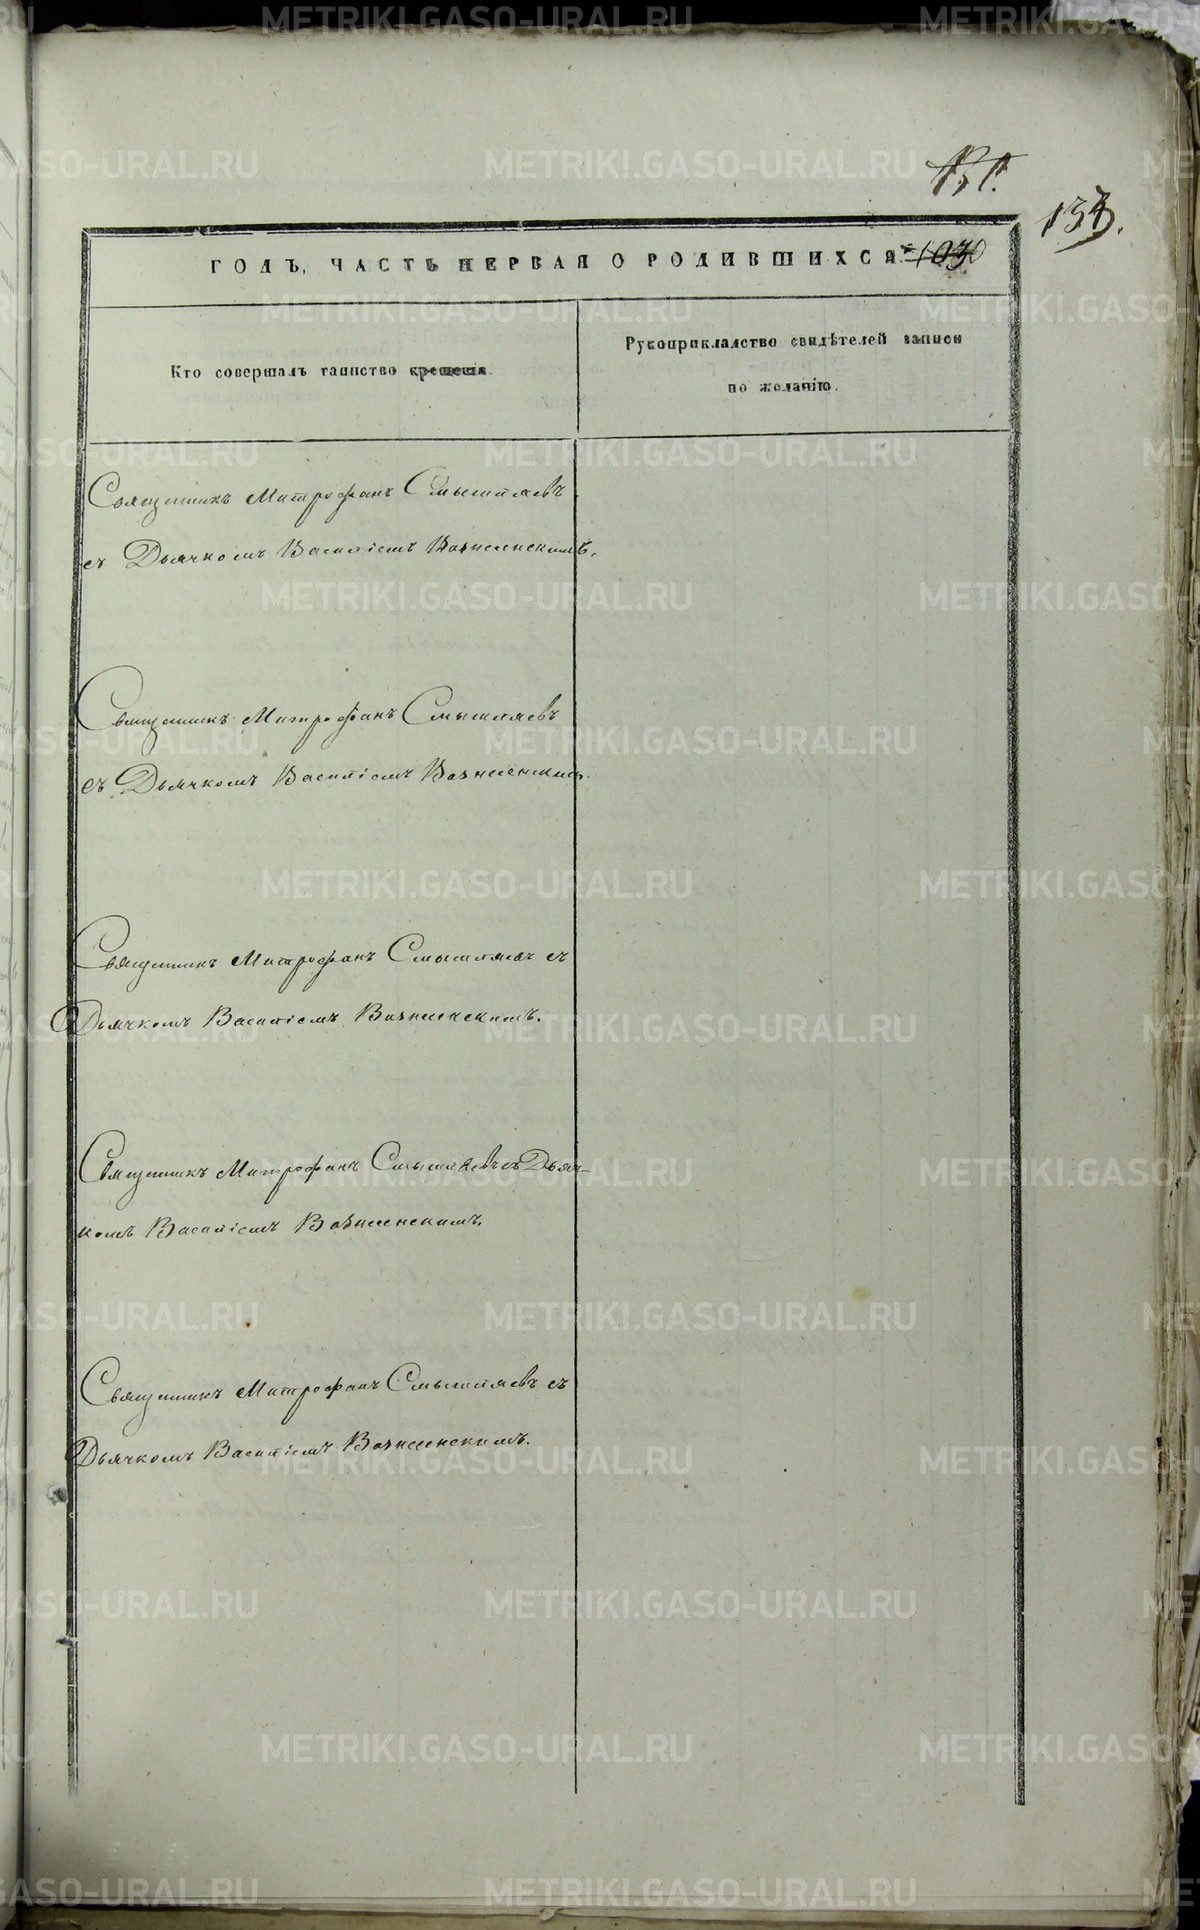 137.
ГОДЪ, ЧАСТЬ ПЕРВАЯ О РОДИВШИХСЯ.
Кто совершалъ таинство крещенія.
Рукоприкладство свидѣтелей записи
по желанію.
Священникъ Митрофанъ Смышляевъ
съ Дьячкомъ Василіемъ Вознесенскимъ.
Священникъ Митрофанъ Смышляевъ
съ Дьячкомъ Василіемъ Вознесенскимъ.
Священникъ Митрофанъ Смышляевъ съ
Дьячкомъ Василіемъ Вознесенскимъ.
Священникъ Митрофанъ Смышляевъ съ Дьяч-
комъ Василіемъ Вознесенскимъ.
Священникъ Митрофанъ Смышляевъ съ
Дьячкомъ Василіемъ Вознесенскимъ.
METRIKI.GASO-URAL.RU